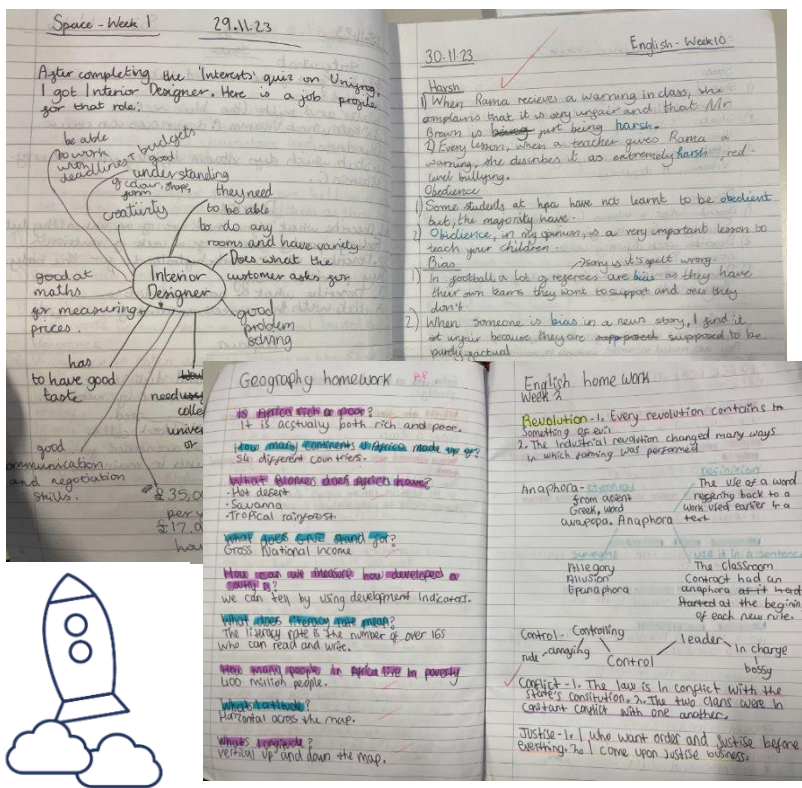 Space - Week 1
29.11.23
After completing the 'Interests' quiz on Unifrog,
I got Interior Designer. Here is a job profile
for that role:
be able
to work
with
deadlines + budgets
good
understanding
of colour, shape,
creativity
they need
to be able
to do any
rooms and have variety.
Does what the
customer asks for
Interior
Designer
good at
maths
for measuring +
prices.
good
problem
solving
has
to have good
taste
need
colle
univer
or
good
ommunication
and negotiation
skills.
£35,0
per y
£17,0
hou
30.11.23
English - Week 10
Harsh
1) When Rama recieves a warning in class, she
complains that it is very unfair and that Mr
Brown is being just being harsh.
2) Every lesson, when a teacher gives Rama a
warning, she describes it as extremely harsh, red
level bullying.
Obedience
1) Some students at hpa have not learnt to be obedient
but, the majority have.
2) Obidience, in my opinion, is a very important lesson to
teach your children.
Bias
sorry is it's spelt wrong.
1) In football a lot of referees are bias as they have
their own teams they want to support and ones they
don't.
2) When someone is bias in a news story, I find it
unfair because they are supposed to be
purely factual
Geography homework
Is Africa rich or poor?
It is acstually both rich and poor.
How many continents is Africa made up of?
54 different countries.
What Biomes does Africa have?
- Hot desert
- Savanna
- Tropical rainforest
What does GNI stand for?
Gross National Income
How can we measure how developed a
we can tell by using development indicators.
What does literacy rate mean?
The literacy rate is the number of over 16s
who can read and write.
How many people in Africa live in poverty
400 million people.
Whats latitude?
Horizontal across the map.
Whats longitude?
vertical up and down the map.
English home work
Week 2
Revolution - 1. Every revolution contains in
something of evil
2. The industrial revolution changed many ways
in which farming was performed
Anaphora - etymology
from ascent
Greek, word
avapopa. Anaphora
Definition
The use of a word
reffering back to a
work used earlier in a
text
synonyms
Allegory
Allusion
Epanaphora
use it in a sentence
The classroom
Contract had an
anaphora as it had
started at the beginin
of each new rule.
Control - Controlling
rule - annoying
Control
leader
In charge
bossy
Conflict - 1. The law is in conflict with the
state's consitution. 2. The two clans were in
Constant conflict with one another.
Justise - 1. I who want order and Justise before
everything. 2. I come upon justise business.